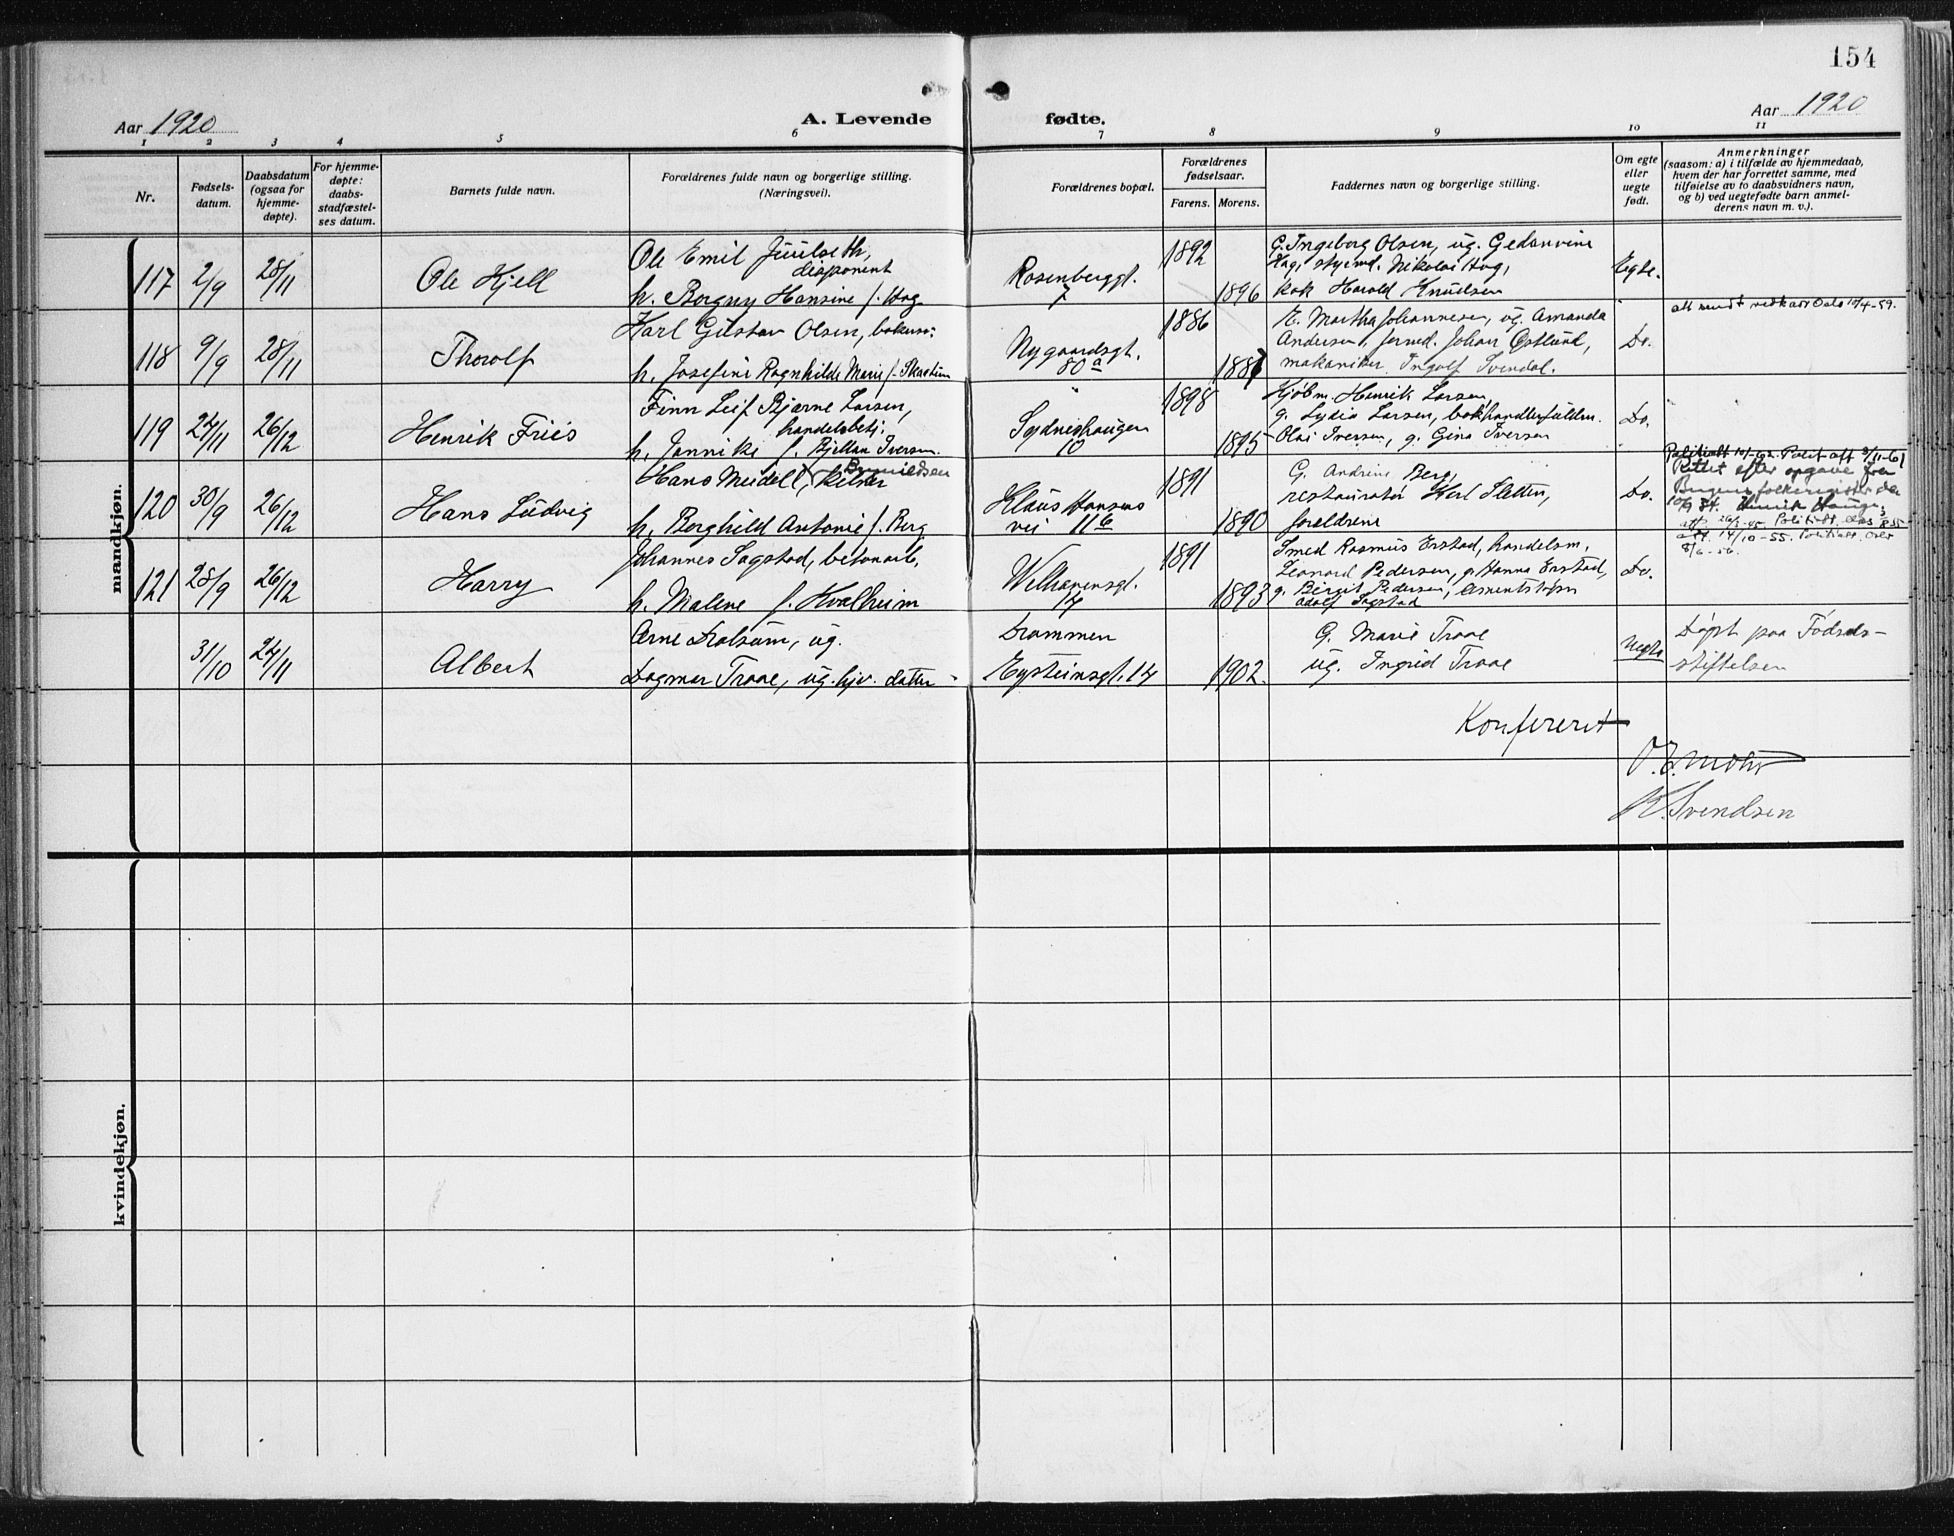 154
Aar 1920
A. Levende fødte.
Aar 1920
1 2 3 4 5 6 7 8 9 10 11
Nr.
Fødsels-
datum.
Daabsdatum
(ogsaa for
hjemme-
døpte).
For hjemme-
døpte:
daabs-
stadfæstel-
ses datum.
Barnets fulde navn.
Forældrenes fulde navn og borgerlige stilling.
(Næringsvei).
Forældrenes bopæl.
Forældrenes
fødselsaar.
Farens. Morens.
Faddernes navn og borgerlige stilling.
Om egte
eller
uegte
født.
Anmerkninger
(saasom: a) i tilfælde av hjemmedaab,
hvem der har forrettet samme, med
tilføielse av to daabsvidners navn,
og b) ved uegtefødte barn anmel-
derens navn m. v.).
mandkjøn.
117 2/9 28/11 Ole Kjell
Ole Emil Juulseth,
disponent
h. Borgny Hansine f. Hag
Rosenberggt.
7
1892 1896
G. Ingeborg Olsen, ug. Gedanvine
Hag, styrmd. Nikolai Hag,
kok Harald Knudsen
Egte.
118 9/9 28/11 Thorolf
Karl Gustav Olsen,
h. Josefine Ragnhilde Marie f.
Nygaardsgt.
80a
1886 1887
E. Martha Johannesen, ug. Amanda
Andersen, Johan Østlund,
mekaniker Ingolf Svendal.
Do.
att. sendt Oslo 15/4-59.
119 24/11 26/12 Henrik Friis
Finn Leif Bjarne Larsen,
handelsbetj.
h. Jannike f. Kjellan Iversen.
Sydneshaugen
10
1898 1895
Kjøbm. Henrik Larsen,
g. Lydia Larsen, bokhandlerfuldm.
Olai Iversen, g. Gina Iversen
Do.
120 30/9 26/12 Hans Ludvig
Hans Meidell,
h. Borghild Antonie f. Berg
Klaus Hansens
vei 11b
1891 1890
G. Andrine Berg,
restauratør Karl Sletten,
foreldrene
Do.
Rettet efter opgave fra
Bergens folkeregister
121 28/9 26/12 Harry
Johannes Sagstad, betonarb.
h. Malene f. Kvalheim
Welhavensgt.
17
1891 1893
Smed Rasmus Erstad, handelsm.
Leonard Pedersen, g. Hanna Erstad,
g. Birgit Pedersen,
Adolf Sagstad
Do.
31/10 24/11 Albert
Arne Dalsum, ug.
Dagmar Traae, ug. hjv. datter
Drammen
Eysteinsgt. 14
1902.
G. Marie Traae
ug. Ingrid Traae
Uegte
Døpt paa Fødsels-
stiftelsen
Konfereret
K. Svendsen
kvindekjøn.